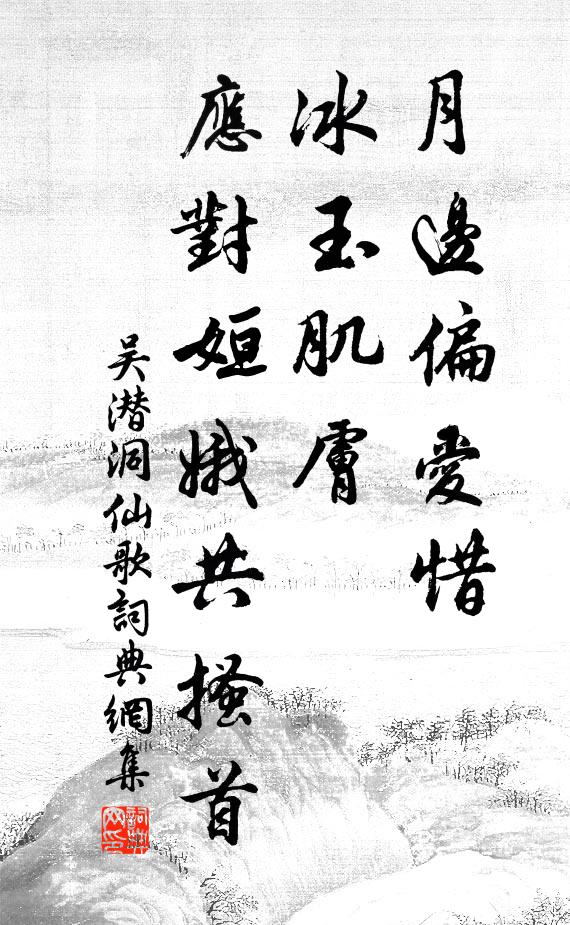 月邊偏愛惜
冰玉肌膚
應對姮娥共搔首
吴潜洞仙歌詞典網集